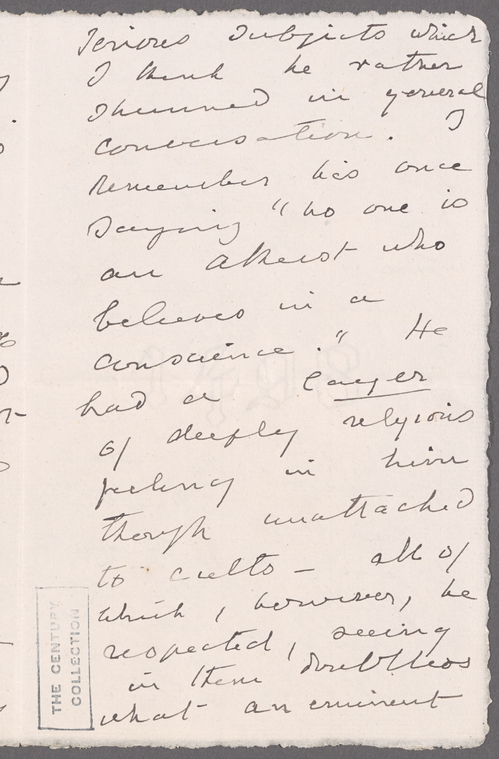 serious subjects which
I think he rather
shunned in general
conversation. I
remember his once
saying "no one is
an atheist who
believes in a
conscience." He
had a layer
of deeply religious
feeling in him
though unattached
to cults – all of
which, however, he
respected, seeing
in them doubtless
what an eminent
THE CENTURY
COLLECTION